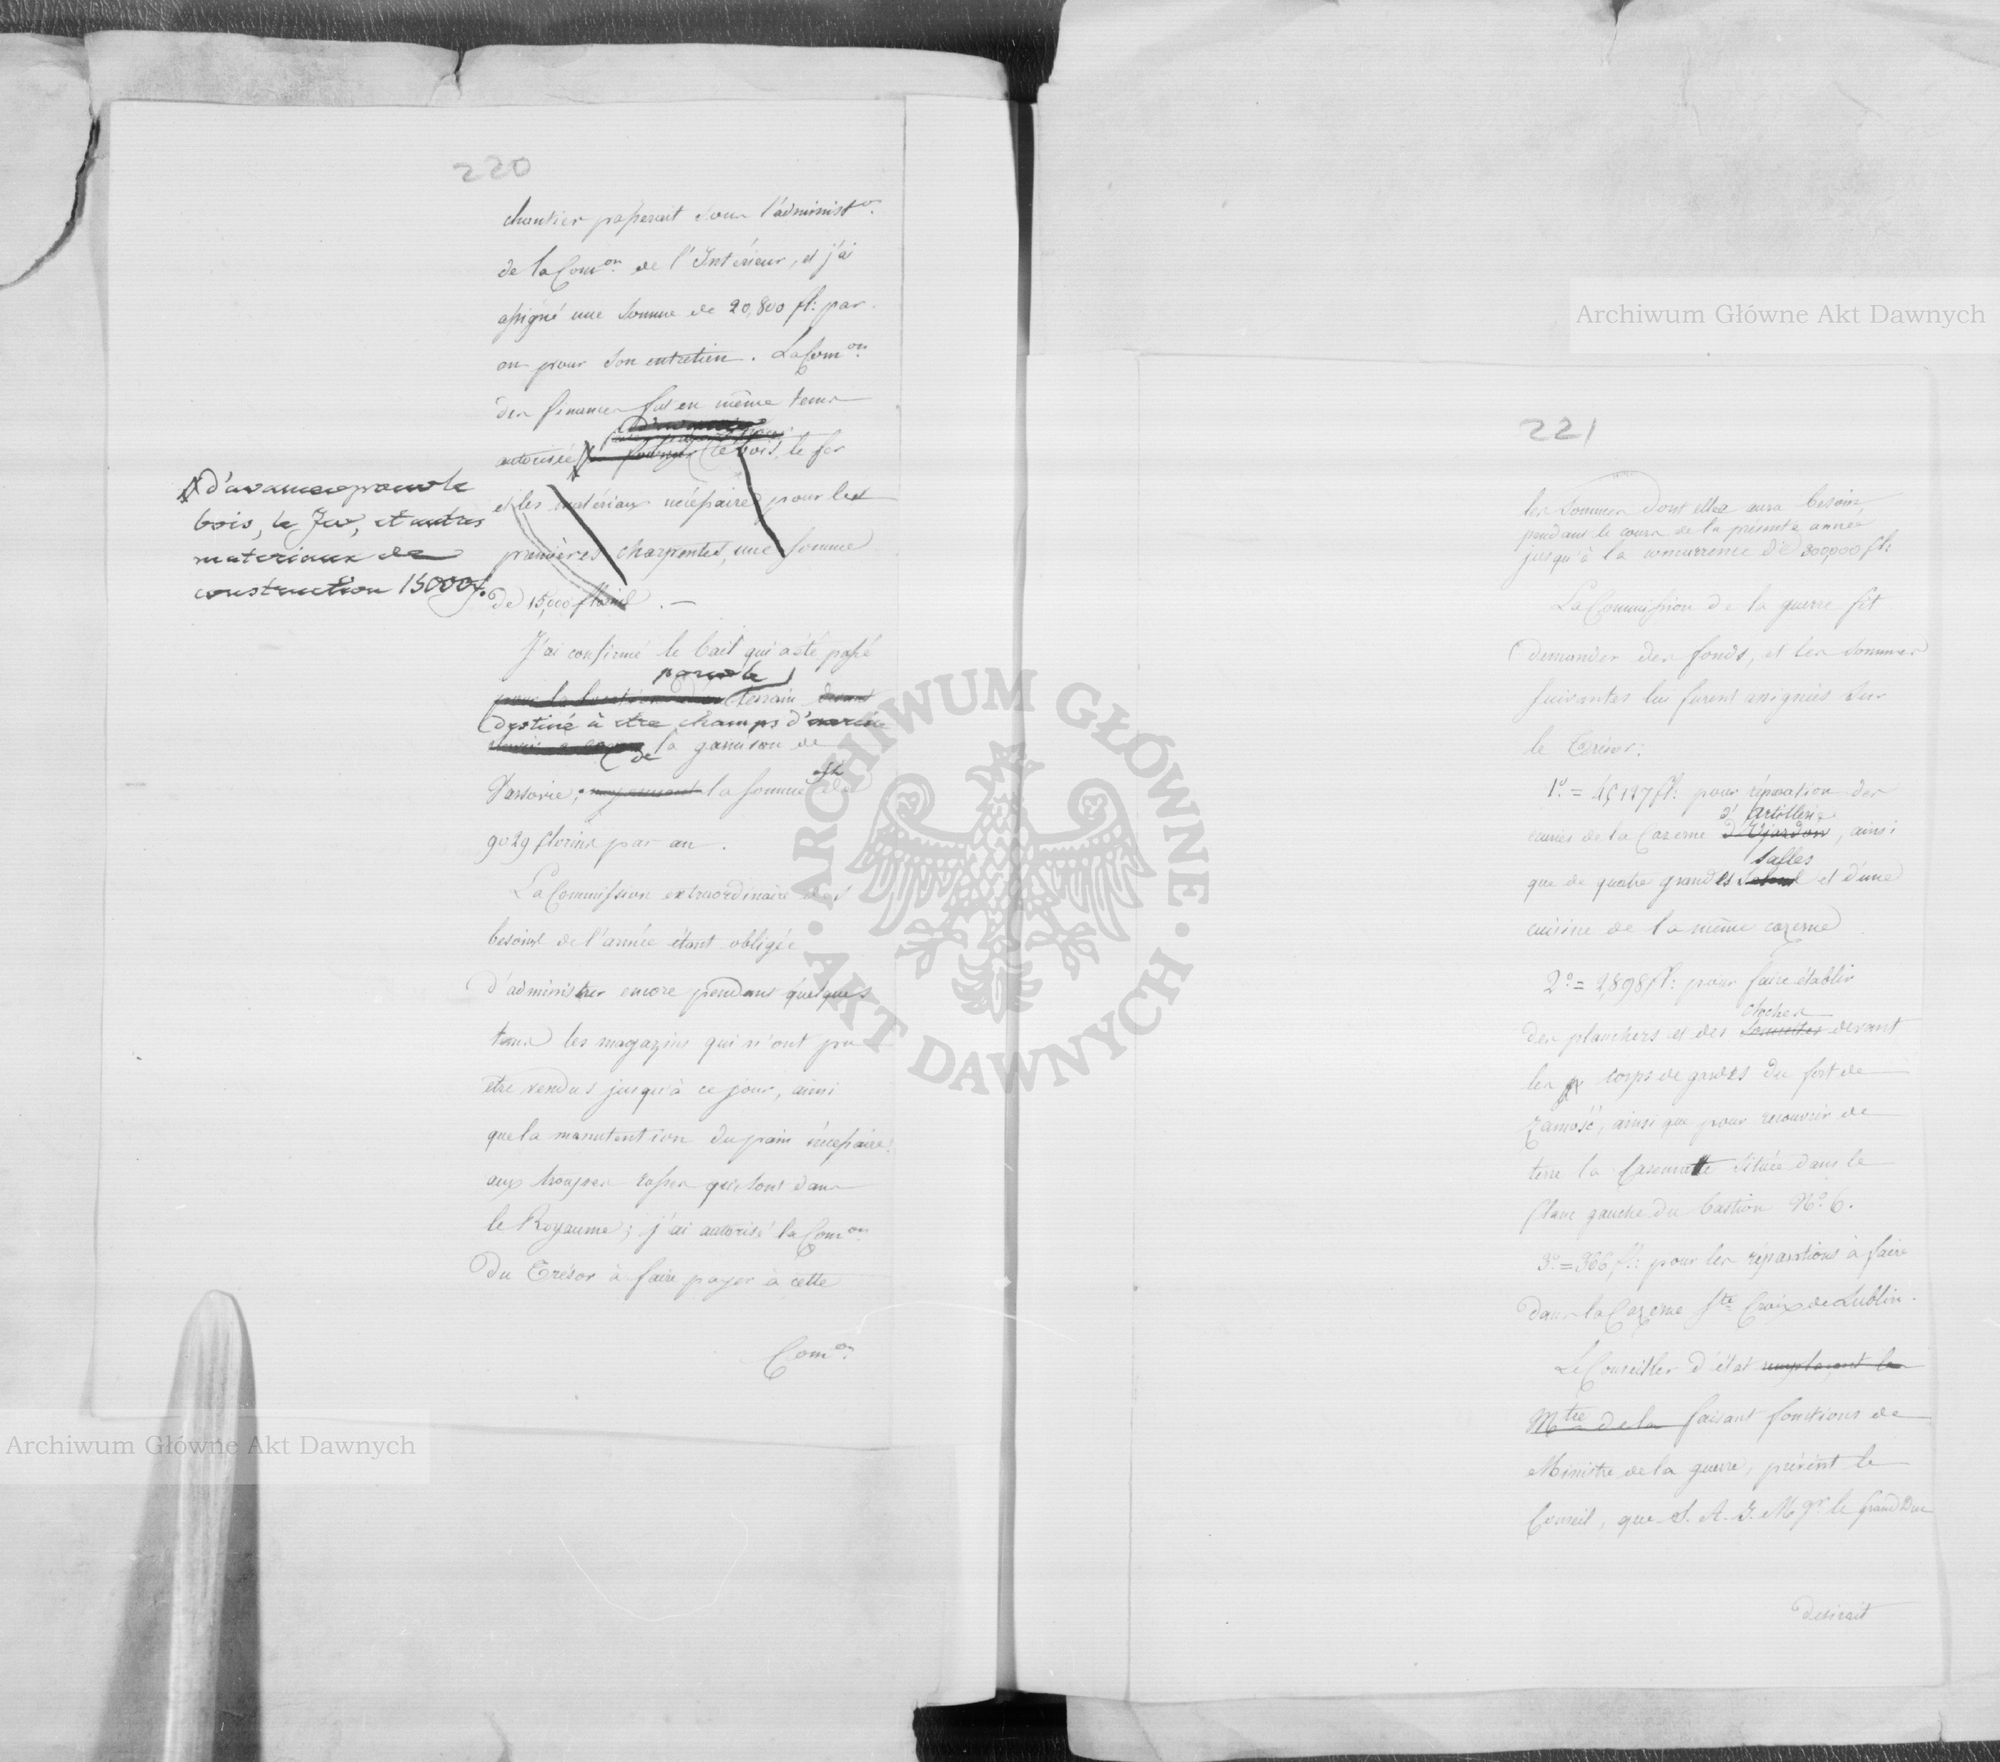 220
chantier passerait sous l'administ.on
de la Com.on de l'Intérieur, et j'ai
assigné une somme de 20,800 fl: par
an pour son entretien. La Com.on
des finances fut en même tems
autorisée à fournir le bois, le fer
et les matériaux nécessaires pour les
premières charpentes, une somme
de 15,000 florins. —
d'avancer pour le
bois, le fer, et autres
materiaux de
construction 15000 f.
J'ai confirmé le bail qui a été passé
pour le
pour la location d'un terrain
destiné à etre champs d'exercice
de la garnison de
Varsovie, moyennant la somme de
9029 florins par an.
La Commission extraordinaire des
besoins de l'armée étant obligée
d'administrer encore pendant quelques
tems les magazins qui n'ont pu
etre vendus jusqu'à ce jour, ainsi
que la manutention du pain nécessaire
aux troupes russes qui sont dans
le Royaume; j'ai autorisé la Com.on
du Trésor à faire payer à cette
Com.on
221
les sommes dont elle aura besoin,
pendant le cours de la présente année
jusqu'à la concurrence de 300,000 fl:
La Commission de la guerre fit
demander des fonds, et les sommes
suivantes lui furent assignées sur
le Trésor:
1.o = 45197 fl: pour réparation des
d'Artillerie
caves de la Cazerne d'Ujazdow, ainsi
salles
que de quatre grandes et d'une
cuisine de la même cazerne.
2.o = 2,898 fl: pour faire établir
cloches
des planchers et des devant
les corps de gardes du fort de
Zamość, ainsi que pour recouvrir de
terre la casematte située dans le
flanc gauche du bastion N.o 6.
3.o = 366 fl: pour les réparations à faire
dans la Cazerne Ste Croix de Lublin.
Le Conseiller d'état remplaçant le
Mtre de la faisant fonctions de
Ministre de la guerre, prévint le
Conseil, que S. A. I. Mgr le Grand Duc
desirait
Archiwum Główne Akt Dawnych
Archiwum Główne Akt Dawnych
ARCHIWUM GŁÓWNE
AKT DAWNYCH